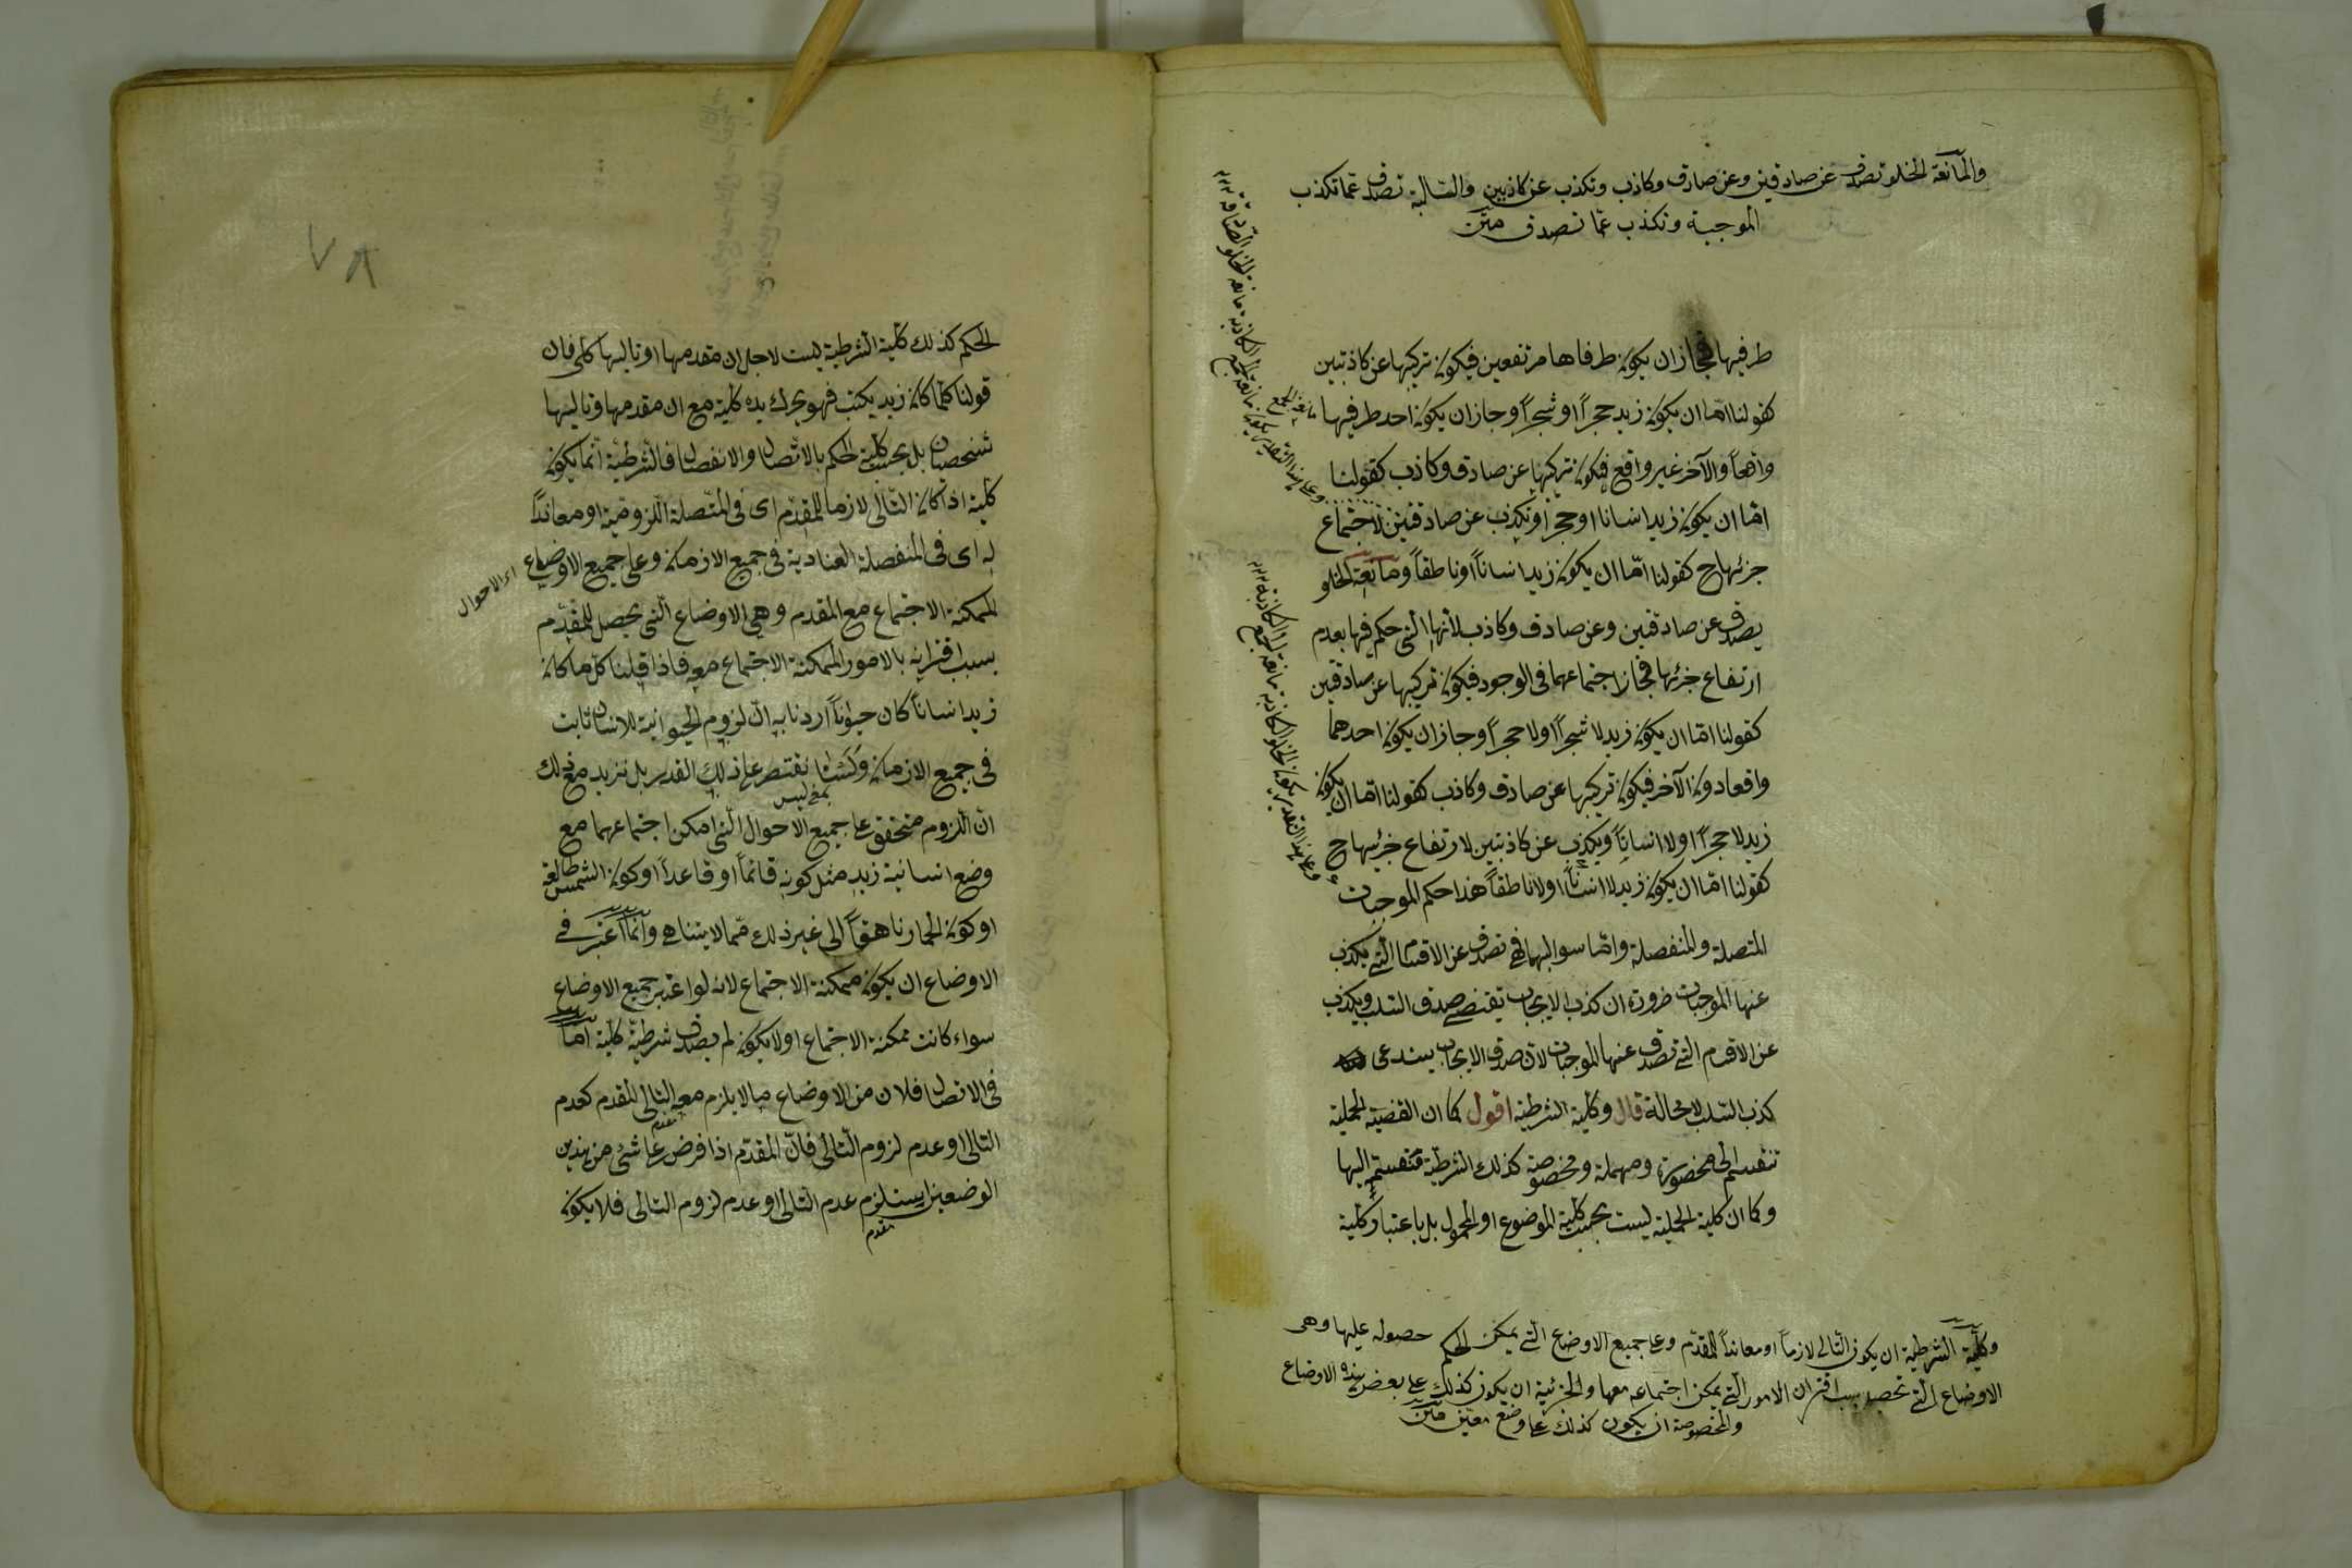 والمانعة الخلو تصدق عن صادقين وعن صادق وكاذب وتكذب عن كاذبين والسالبة تصدق عما تكذب
الموجبة وتكذب عما تصدق متن
طرفيها فجاز ان يكون طرفاها مرتفعين فيكون تركيبها عن كاذبتين
كقولنا اما ان يكون زيد حجراً او شجراً وجاز ان يكون احد طرفيها
واقعاً والآخر غير واقع فيكون تركيبها عن صادق وكاذب كقولنا
اما ان يكون زيد انسانا او حجرا وتكذب عن صادقتين لاجتماع
جزئيها ح كقولنا امّا ان يكون زيد انساناً او ناطقاً ومانعة الخلو
يصدق عن صادقين وعن صادق وكاذب لأنها التى حكم فيها بعدم
ارتفاع جزئيها فجاز اجتماعهما فى الوجود فيكون تركيبها عن صادقين
كقولنا امّا ان يكون زيد لا شجراً او لا حجراً وجاز ان يكون احدهما
واقعا دون الآخر فيكون تركيبها عن صادق وكاذب كقولنا امّا ان يكون
زيد لا حجراً او لا انساناً ويكذب عن كاذبتين لارتفاع جزئيها ح
كقولنا امّا ان يكون زيد لا انساناً او لا ناطقاً هذا حكم الموجبات
المتصلة والمنفصلة وامّا سوالبهما فهى تصدق عن الاقسام التى يكذب
عنها الموجبات ضرورة ان كذب الايجاب يقتضى صدق السلب ويكذب
عن الاقسام التى تصدق عنها الموجبات لانّ صدق الايجاب يستدعى
كذب السلب لا محالة قال وكلية الشرطية اقول كما ان القضية الحملية
تنقسم الى محصورة ومهملة ومخصوصة كذلك الشرطيّة منقسمة اليها
وكما ان كلية الحملية ليست بحسب كلية الموضوع او المحمول بل باعتبار كلية
وكلّية الشرطية ان يكون التالى لازماً او معانداً للمقدّم وعلى جميع الاوضاع التى يمكن الحكم حصوله عليها وهى
الاوضاع التى تحصل بسبب اقتران الامور التى يمكن اجتماعه معها والجزئية ان يكون كذلك على بعض هذه الاوضاع
والمخصوصة ان يكون كذلك على وضع معين متن
وعلى هذا التقدير يكون مانعة الجمع الكاذبة مانعة الخلو الصادقة
مانعة الجمع
وعلى هذا التقدير يكون الخلو الكاذبة مانعة الجمع
٧٨
الحكم كذلك كلية الشرطية ليست لاجل ان مقدمها او تاليها كلى فان
قولنا كلّما كان زيد يكتب فهو يحرك يده كلية مع ان مقدمها وتاليها
شخصيان بل بحسب كلية الحكم بالاتّصال والانفصال فالشرطية انّما يكون
كلية اذا كان التّالى لازما للمقدّم اى فى المتّصلة اللزوميّة او معانداً
له اى فى المنفصلة العنادية فى جميع الازمان وعلى جميع الاوضاع
اى الاحوال
الممكنة الاجتماع مع المقدم وهى الاوضاع الّتى يحصل للمقدّم
بسبب اقترانه بالامور الممكنة الاجتماع معه فاذا قلنا كلّ ما كان
زيد انساناً كان حيواناً اردنا به انّ لزوم الحيوانية للانسان ثابت
فى جميع الازمان ولسنا نقتصر على ذلك القدر بل نزيد مع ذلك
بمعنى ليس
ان اللزوم متحقق على جميع الاحوال الّتى امكن اجتماعهما مع
وضع انسانية زيد مثل كونه قائماً او قاعداً او كون الشمس طالعة
او كون الحمار ناهقاً الى غير ذلك ممّا لا يتناهى وانّما اعتبر فى
الاوضاع ان يكون ممكنة الاجتماع لانه لو اعتبر جميع الاوضاع
سواء كانت ممكنة الاجتماع او لا يكون لم يصدق شرطيّة كلّية امّا
فى الاتصال فلان من الاوضاع ما لا يلزم معه التالى للمقدم كعدم
التالى او عدم لزوم التّالى فانّ المقدّم اذا فرض على شئ من هذين
مقدم
الوضعين استلزم عدم التالى او عدم لزوم التالى فلا يكون
مقدم